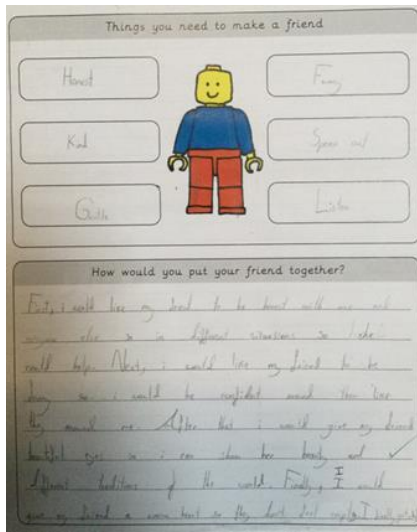 Things you need to make a friend
Honest
Funny
Kind
Speak out
Gentle
Listen
How would you put your friend together?
First, i would like my friend to be honest with me and
else so in different situations so she
could help. Next, i would like my friend to be
funny so i would be confident around them like
they around me. After that i would give my friend
beautiful eyes so i can show her beauty and
different traditions of the world. Finally, I would
give my friend a warm heart so they don't feel